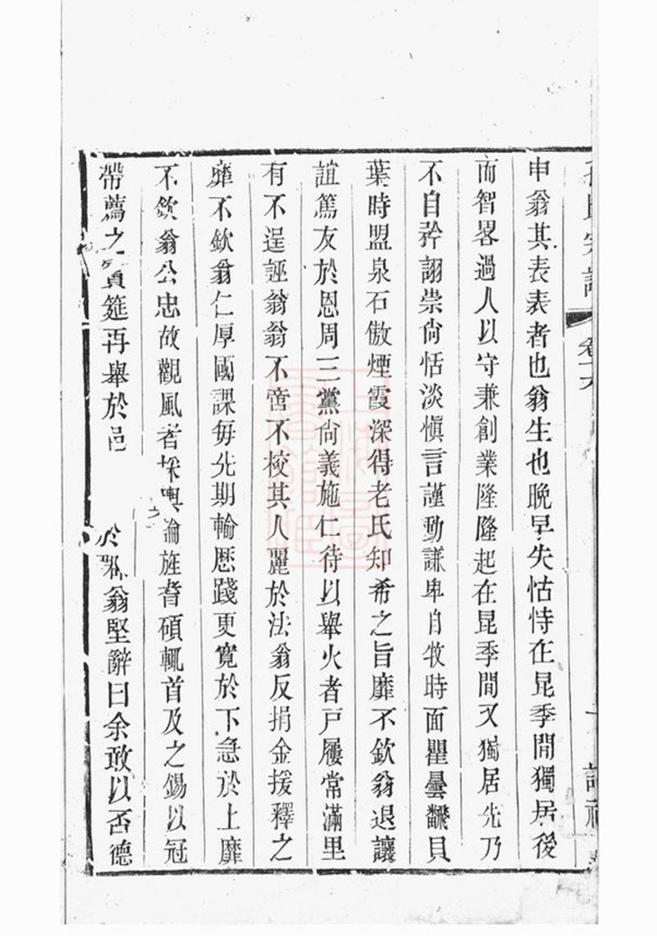 孫氏宗譜 卷十六
申翁其表表者也翁生也晚早失怙恃在昆季間獨居後
而智畧過人以守兼創業隆隆起在昆季間又獨居先乃
不自矜詡崇尙恬淡愼言謹動謙卑自牧時面瞿曇飜貝
葉時盟泉石傲煙霞深得老氏知希之旨靡不欽翁退讓
誼篤友於恩周三黨尙義施仁待以舉火者戸屨常滿里
有不逞誣翁翁不啻不挍其人麗於法翁反捐金援釋之
靡不欽翁仁厚國課每先期輸歷踐更寬於下急於上靡
不欽翁公忠故觀風者採輿論旌耆碩輒首及之錫以冠
帶薦之賓筵再舉於邑
於郡翁堅辭曰余敢以否德